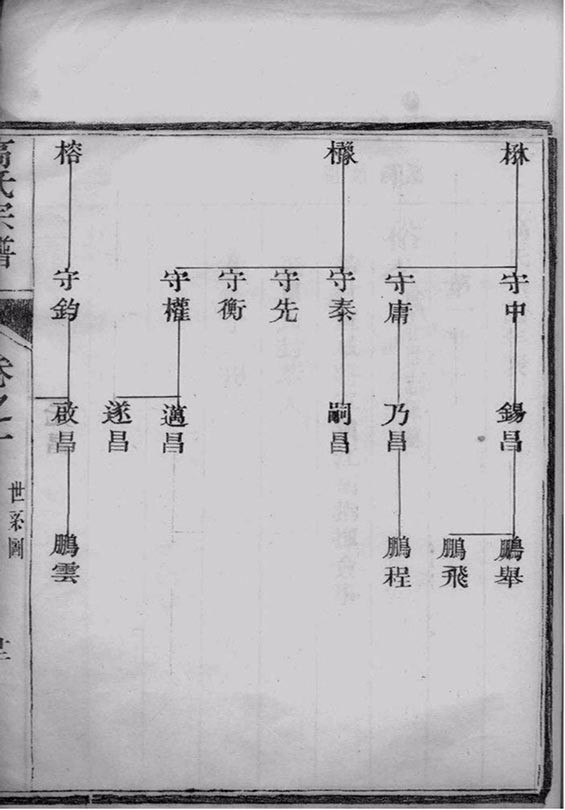 榕
守中
守庸
守泰
守先
守衡
守權
守鈞
錫昌
乃昌
嗣昌
邁昌
遂昌
啟昌
鵬舉
鵬飛
鵬程
鵬雲
高氏宗譜
卷之一
世系圖